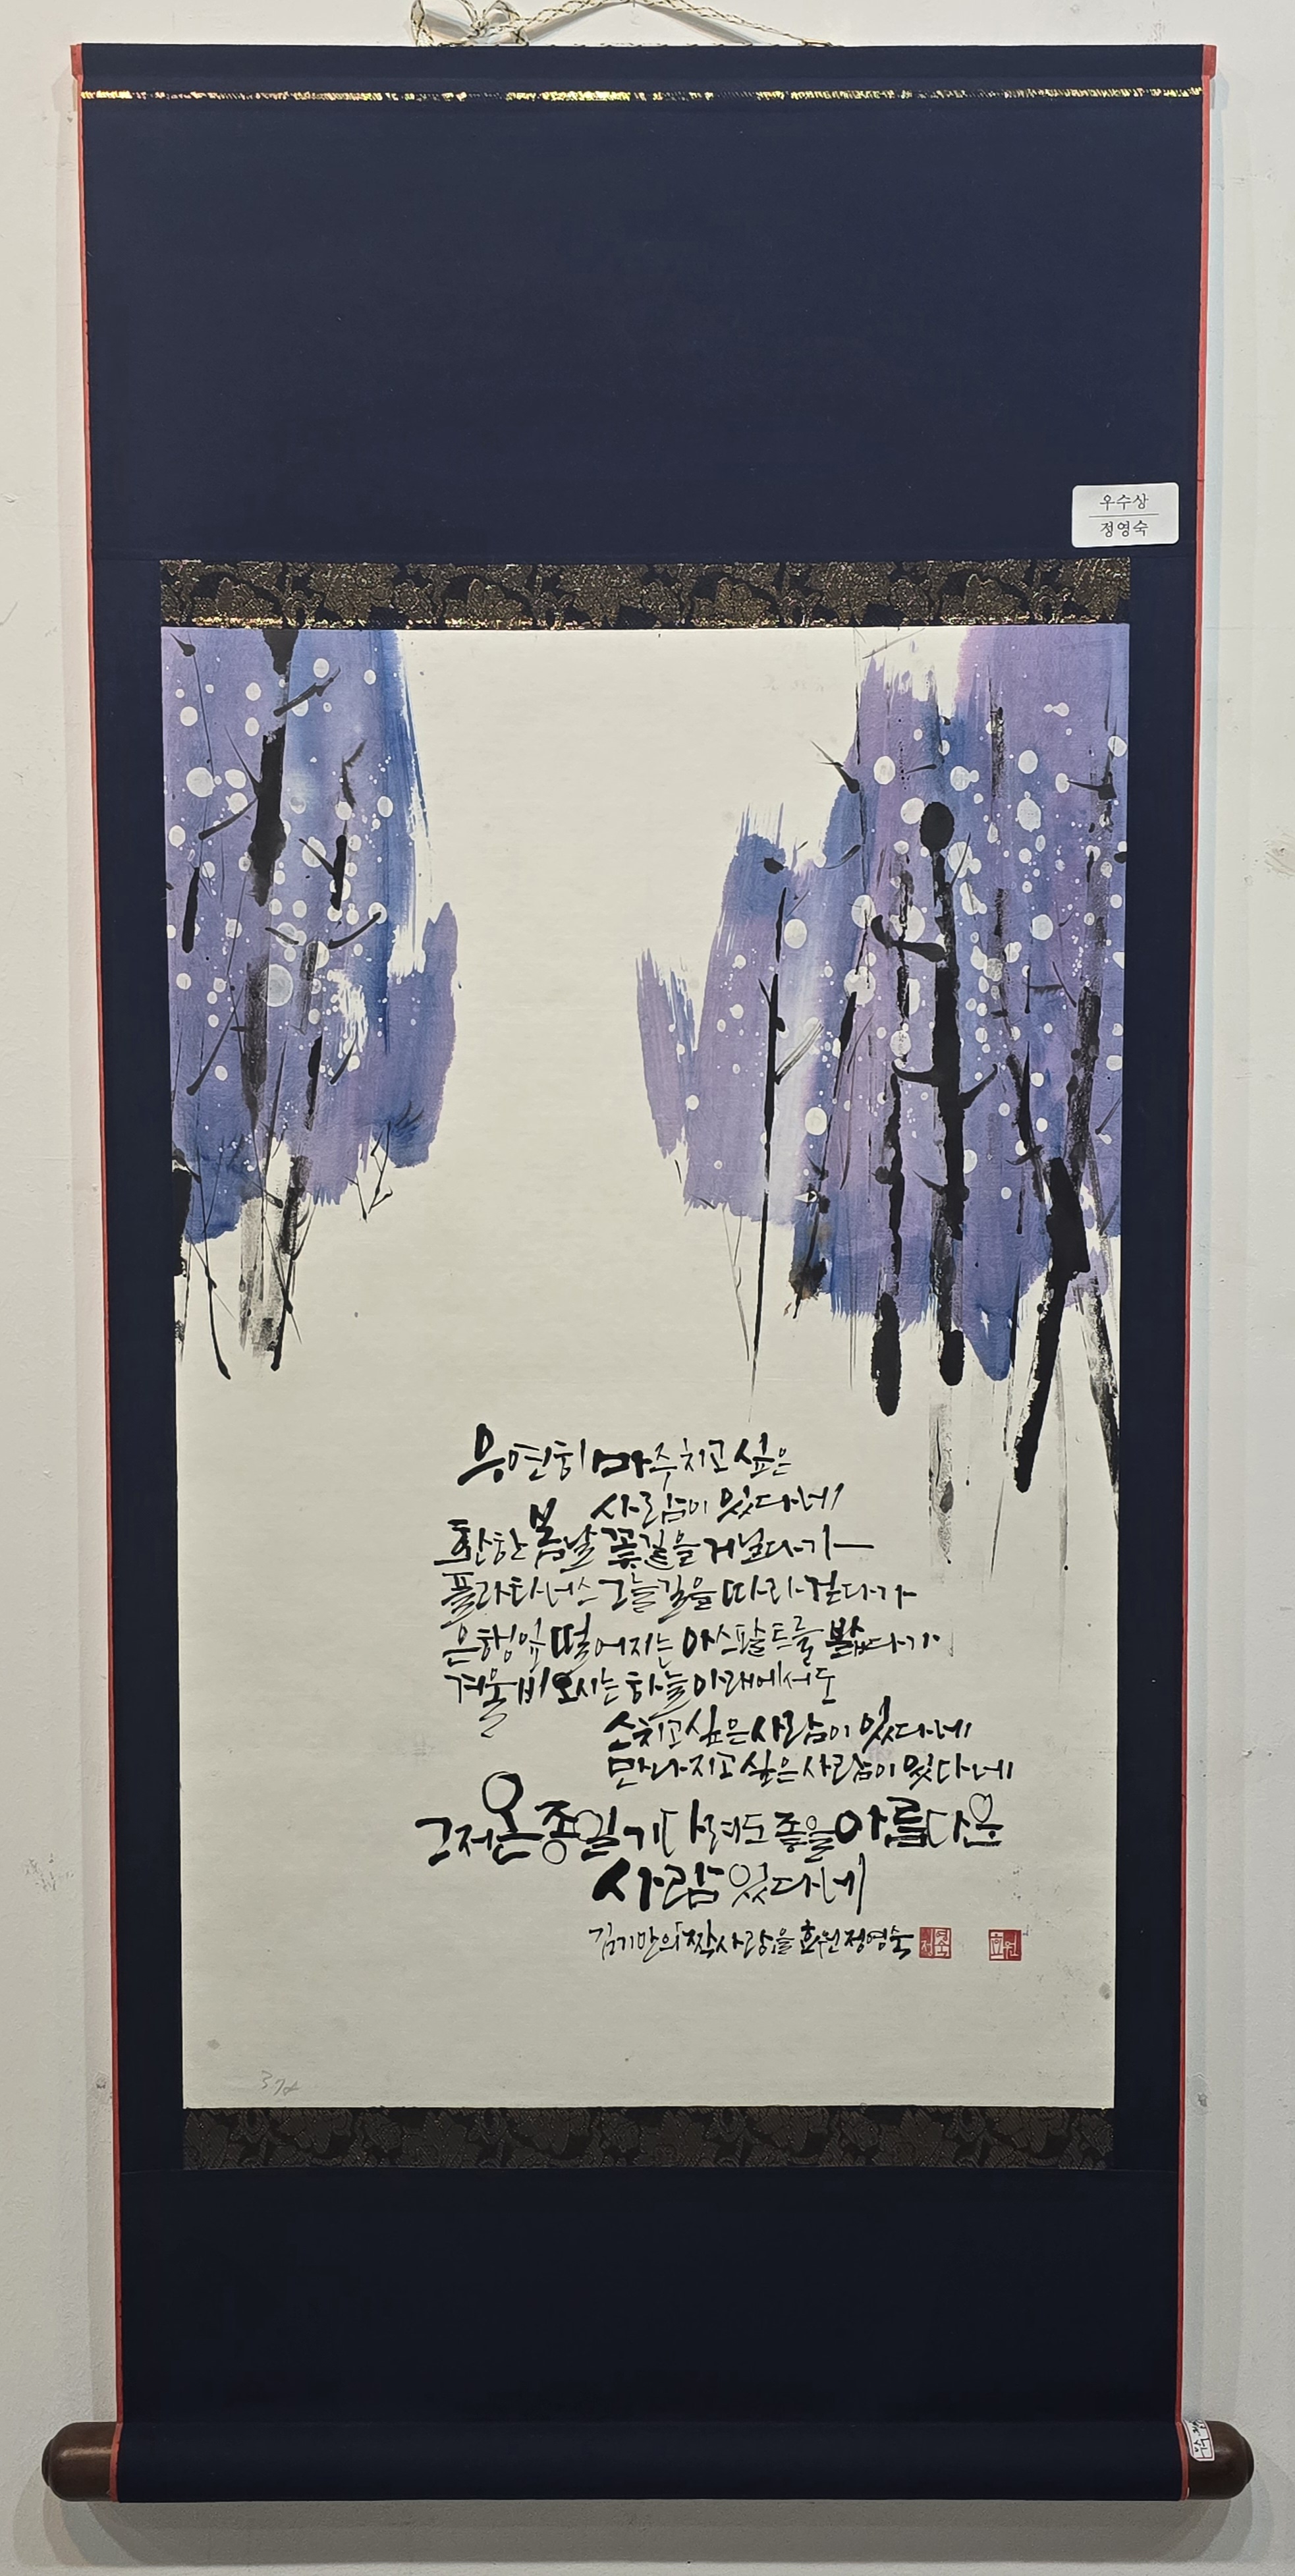 우수상
정영숙
우연히 마주치고 싶은
사람이 있다네
환한 봄날 꽃길을 거닐다가
플라타너스 그늘길을 따라 걷다가
은행잎 떨어지는 아스팔트를 밟다가
겨울비 오시는 하늘 아래에서도
스치고 싶은 사람이 있다네
만나지고 싶은 사람이 있다네
그저 온종일 기다려도 좋을 아름다운
사람 있다네
김기만의「짝사랑」을 화원 정영숙